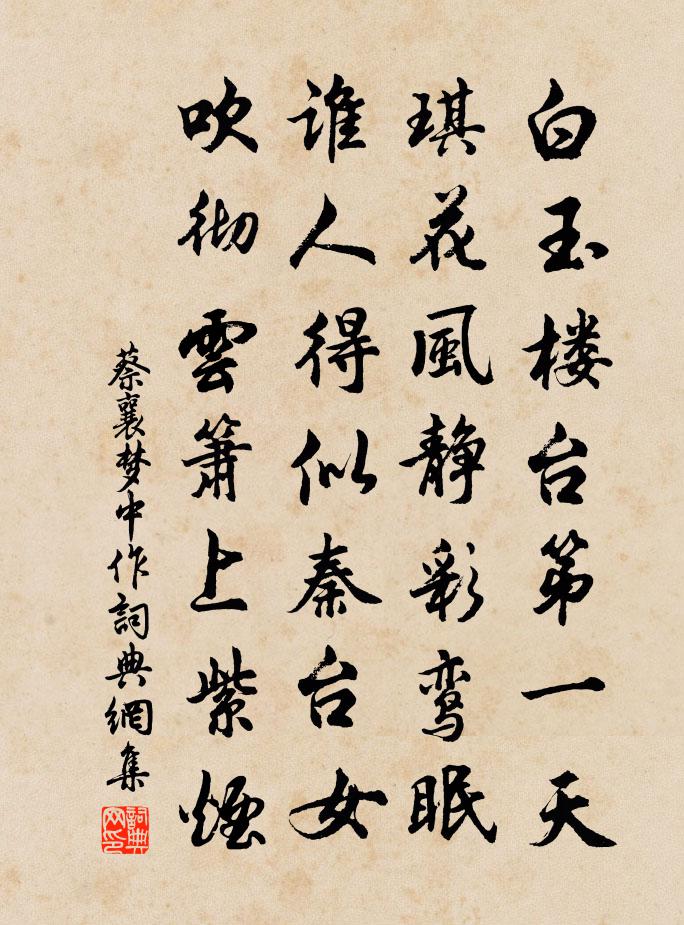 白玉楼台第一天
琪花風静彩鸾眠
谁人得似秦台女
吹彻雲箫上紫煙
蔡襄梦中作詞典網集
詞典网印